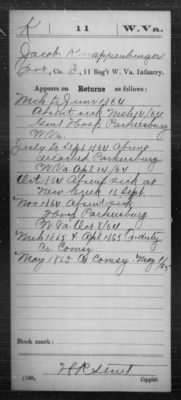 K 11 W.Va.
Jacob Knappenberger
Co. I, 11 Reg't W. Va. Infantry.
Appears on Returns as follows:
Mch to June 1864
Absent sick Mch 14/64
Genl Hosp. Parkersburg
W.Va.
July to Sept. 1864 Absent
Parkersburg
W Va Apl 14/64
Oct 1864 Absent sick at
New Creek 16 Sept.
Nov 1864 Absent sick
Hosp Parkersburg
W Va Oct 8/64
Mch 1865 & Apl 1865 On duty
Co. Comsy.
May 1865 Co Comsy.
Book mark:
(546)
Copyist.